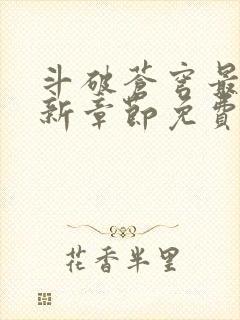 斗破苍穹最
新章节免费
花香半里